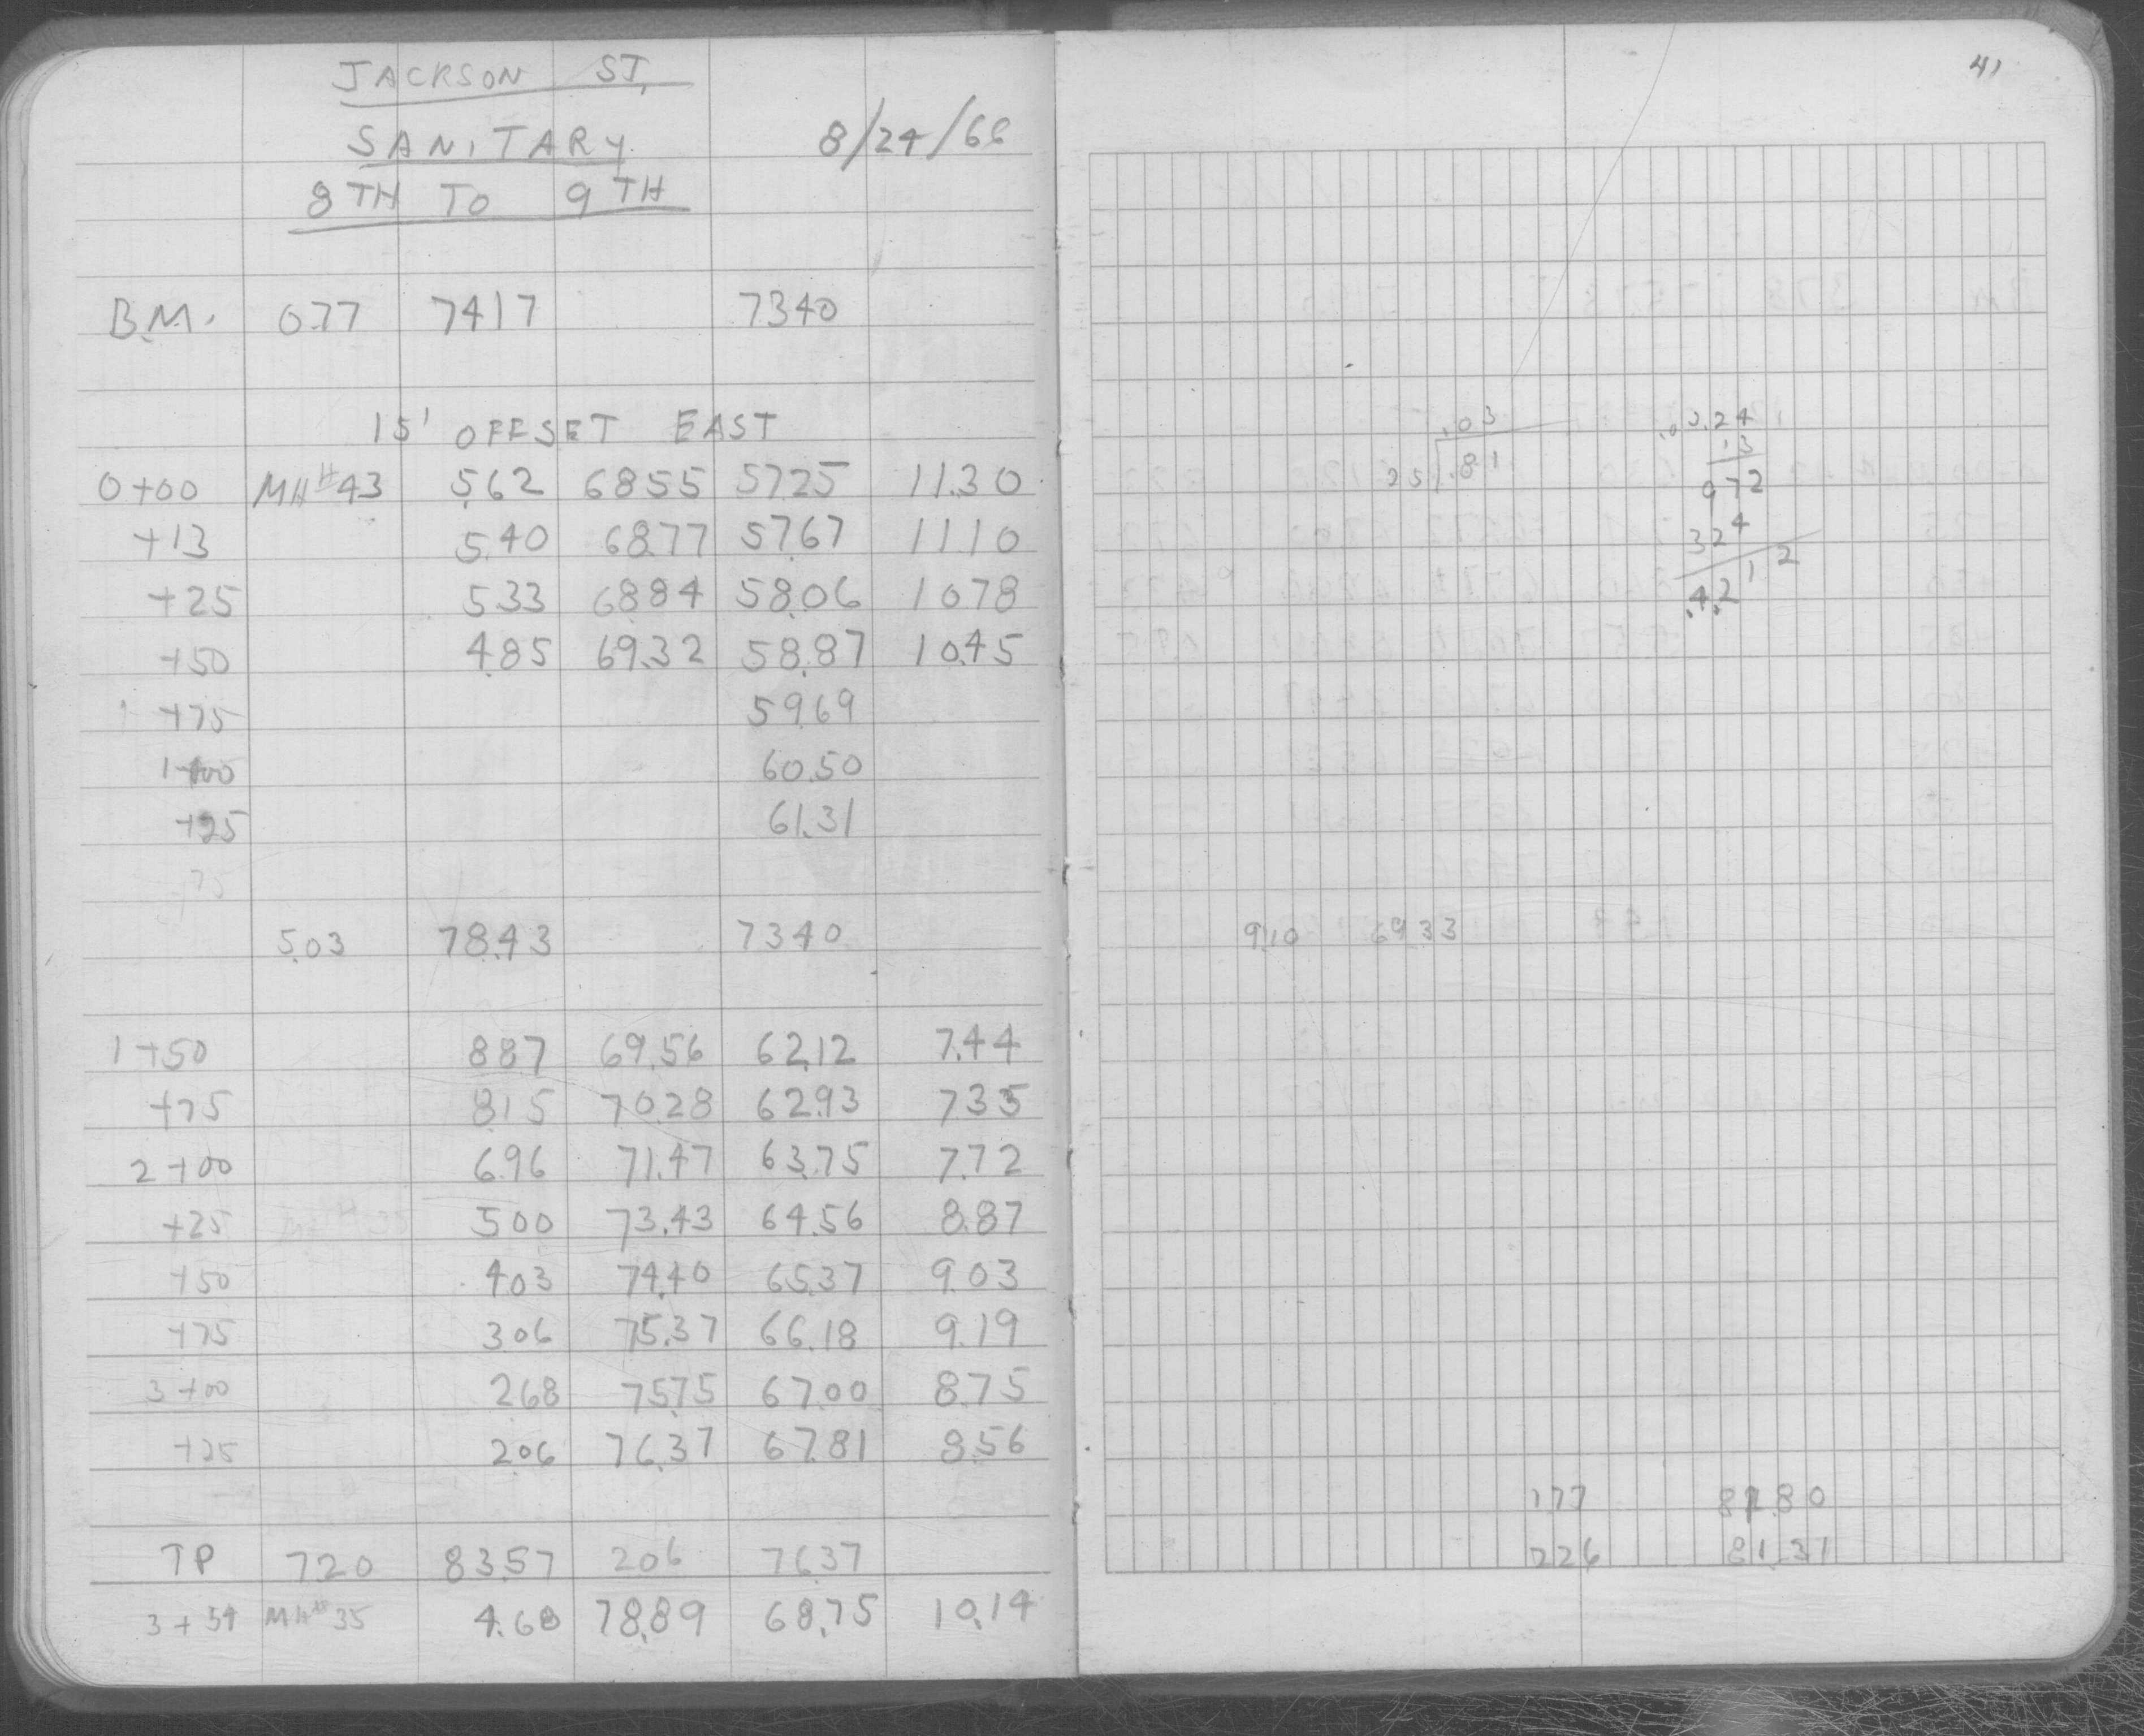 JACKSON ST.
SANITARY 8/24/66
8TH TO 9TH
B.M. 0.77 74.17 73.40
15' OFFSET EAST
0+00 MH#43 5.62 68.55 57.25 11.30
+13 5.40 68.77 57.67 11.10
+25 5.33 68.84 58.06 10.78
+50 4.85 69.32 58.87 10.45
+75 59.69
1+00 60.50
+25 61.31
75
5.03 78.43 73.40
1+50 8.87 69.56 62.12 7.44
+75 8.15 70.28 62.93 7.35
2+00 6.96 71.47 63.75 7.72
+25 5.00 73.43 64.56 8.87
+50 4.03 74.40 65.37 9.03
+75 3.06 75.37 66.18 9.19
3+00 2.68 75.75 67.00 8.75
+25 2.06 76.37 67.81 8.56
TP 7.20 83.57 2.06 76.37
3+54 MH#35 4.68 78.89 68.75 10.14
41
.03
25 .81
.0324
13
972
324
.4212
9.10 69.33
177
226 81.31